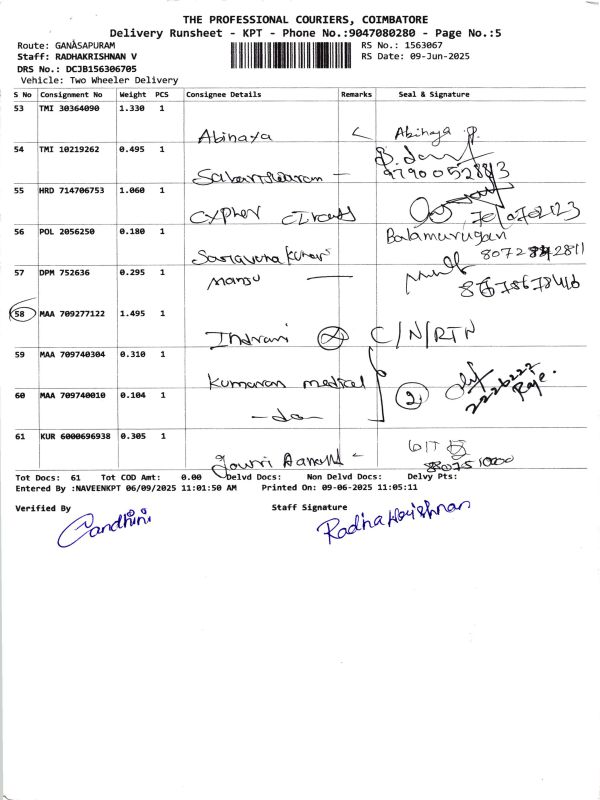 THE PROFESSIONAL COURIERS, COIMBATORE
Delivery Runsheet - KPT - Phone No.:9047080280 - Page No.:5
Route: GANASAPURAM
RS No.: 1563067
Staff: RADHAKRISHNAN V
RS Date: 09-Jun-2025
DRS No.: DCJB156306705
Vehicle: Two Wheeler Delivery
S No Consignment No Weight PCS Consignee Details Remarks Seal & Signature
53 TMI 30364090 1.330 1
Abinaya Abinaya P.
54 TMI 10219262 0.495 1
Sabarishwaram
55 HRD 714706753 1.060 1
Cypher Circuits
56 POL 2056250 0.180 1 Balamurugan
Saravana Kumar
57 DPM 752636 0.295 1 Manju
58 MAA 709277122 1.495 1
Indrani C/N/RTN
59 MAA 709740304 0.310 1
Kumaran medical 2 2226222
60 MAA 709740010 0.104 1 Raje.
-do-
61 KUR 6000696938 0.305 1
Gowri
Tot Docs: 61 Tot COD Amt: 0.00 Delvd Docs: Non Delvd Docs: Delvy Pts:
Entered By :NAVEENKPT 06/09/2025 11:01:50 AM Printed On: 09-06-2025 11:05:11
Verified By Staff Signature
Gandhini Radha Krishnan